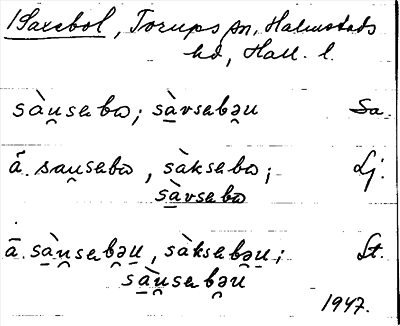 Saxebol, Torups sn, Halmstads
hd, Hall. l.
sàu̯sebω; sà̲vsebə̯u Sa.
ā́. sau̯sebω, sàksebω; Lj.
sà̲vsebω
ā. sà̲u̯sebə̯u̲, sàksebə̯u̲; St.
sà̲u̯sebə̯u
1947.